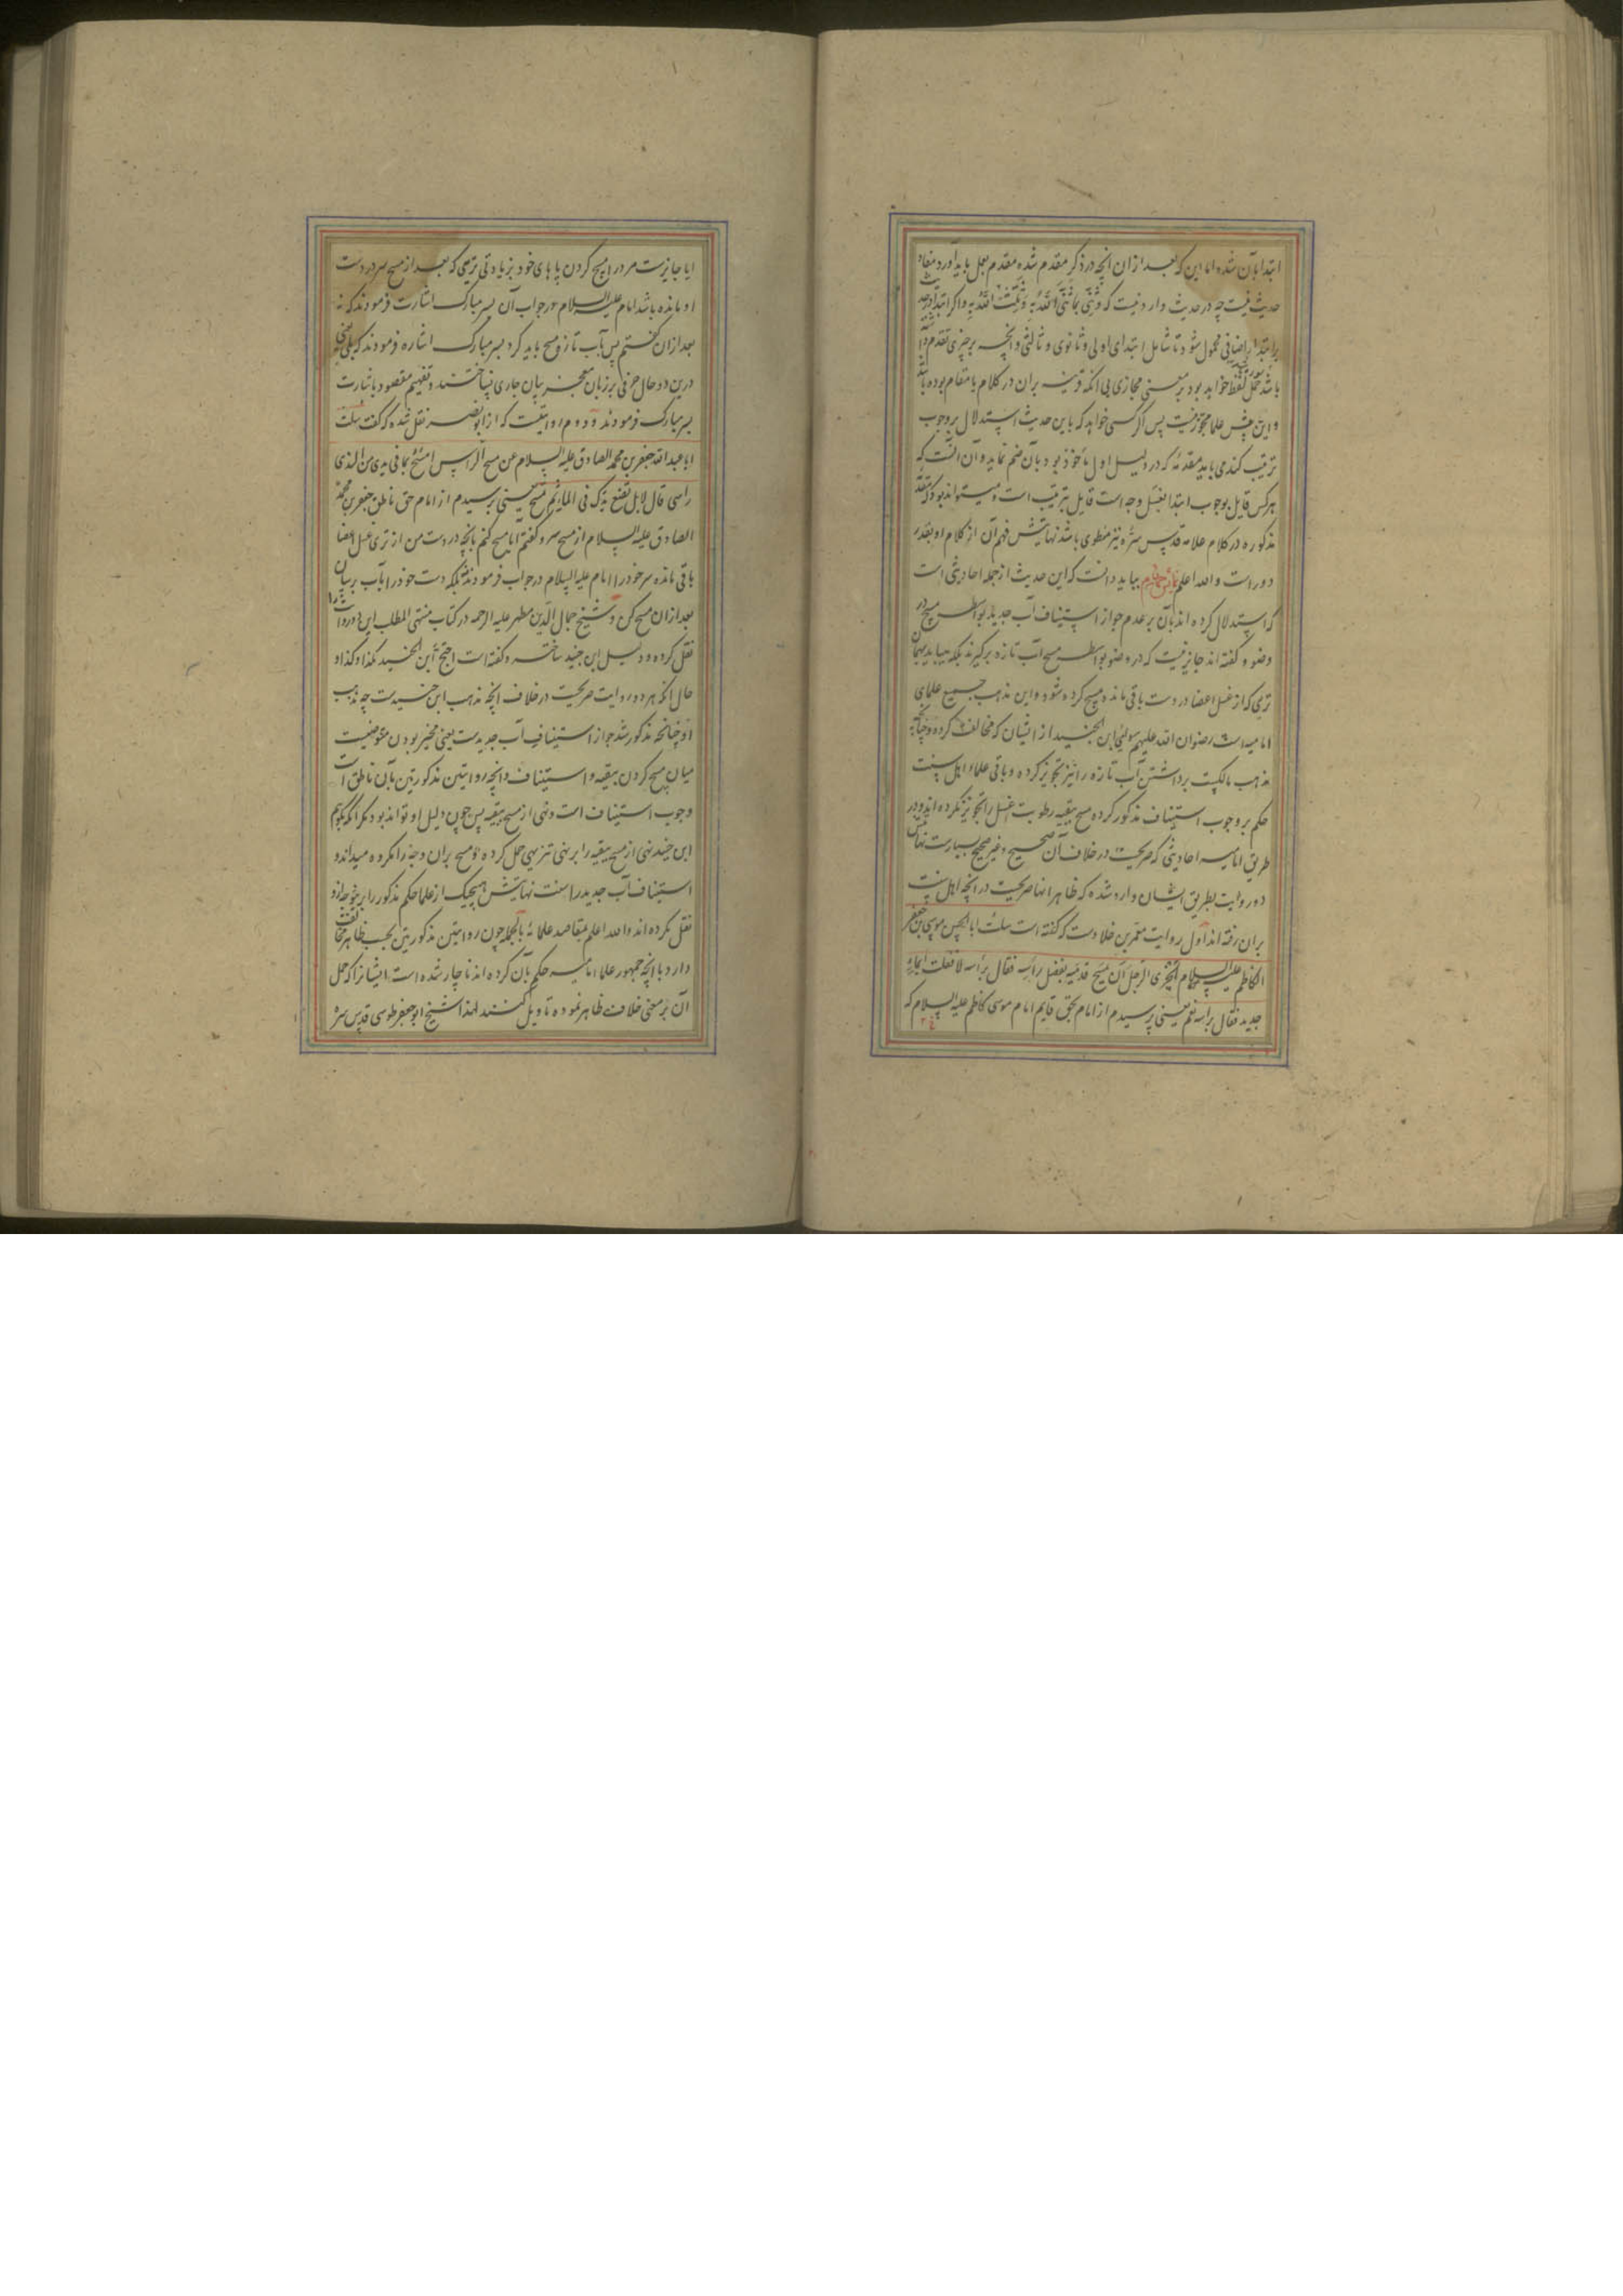 ابتدا بآن شده اما این که بعد از ان انچه در ذکر مقدم شده مقدم بعمل باید آورد مفاد
حدیث نیست چه در حدیث وارد نیست که و ثنی بما ثنی الله به و ثلث الله به و اکر ابتدا در حدیث
بر ابتدای اضافی محمول شود تا شامل ابتدای اولی و ثانوی و ثالثی و انچه بر چیزی تقدم دا
باشد حمل لفظ خواهد بود بر معنی مجازی بی انکه قرینه بران در کلام یا مقام بوده باشد
و این پیش علما مجوز نیست پس اکر کسی خواهد که باین حدیث استدلال بر وجوب
ترتیب کند می باید مقدمه که در دلیل اول ماخوذ بود بآن ضم نماید و آن انست که
هر کس قایل بوجوب ابتدا بغسل وجه است قایل بترتیب است و میتواند بود که مقدمه
مذکوره در کلام علامه قدس سره نیز مطوی باشد نهایتش فهم آن از کلام او بغایت
دور است و الله اعلم بباید دانست که این حدیث از جمله احادیثی است
که استدلال کرده اند بآن بر عدم جواز استیناف آب جدید بواسطه مسح در
وضو و کفته اند جایز نیست که در وضو بواسطه مسح آب تازه برکیرند بلکه میباید بهمان
تری که از غسل اعضا در دست باقی مانده مسح کرده شود و این مذهب جمیع علمای
امامیه است رضوان الله علیهم سوای ابن الجنید از ایشان که مخالفت کرده و چنانچه
مذهب مالکیت برداشتن آب تازه را نیز تجویز کرده و باقی علماء اهل سنت
حکم بر وجوب استیناف مذکور کرده مسح ببقیه رطوبت غسل را تجویز نکرده اند و در
طریق امامیه احادیثی که صریحست در خلاف آن صحیح و غیر صحیح بسیارست نهایتش
دو روایت بطریق ایشان وارد شده که ظاهرا نها صریحست در انچه اهل سنت
بران رفته اند اول روایت معمر بن خلادست که کفته است سئلت ابا الحسن موسی بن جعفر
الکاظم علیه السلام ایجزی الرجل ان یمسح قدمیه بفضل راسه فقال براسه لا فقلت ابماء
جدید فقال براسه نعم یعنی پرسیدم از امام بحق قایم امام موسی کاظم علیه السلام که
ایا جایزست مرد را مسح کردن پاهای خود بزیادتی تریی که بعد از مسح سر در دست
او مانده باشد امام علیه السلام در جواب آن بسر مبارک اشارت فرمودند که نه
بعد از ان کفتم پس بآب تازه مسح باید کرد بسر مبارک اشاره فرمودند که بلی یعنی
درین دو حال حرفی بر زبان معجز بیان جاری نساختند و تفهیم مقصود باشارت
بسر مبارک فرمودند و دوم روایتیست که از ابو بصیر نقل شده که کفت سئلت
ابا عبد الله جعفر بن محمد الصادق علیه السلام عن مسح الراس امسح بما فی یدی من الندی
راسی قال لا بل تضع یدک فی الماء ثم تمسح یعنی پرسیدم از امام حق ناطق جعفر بن محمد
الصادق علیه السلام از مسح سر و کفتم آیا مسح کنم بانچه در دست من از تری غسل اعضا
باقی مانده سر خود را امام علیه السلام در جواب فرمودند نه بلکه دست خود را بآب برسان
بعد از ان مسح کن و شیخ جمال الدین مطهر علیه الرحمه در کتاب منتهی المطلب این دو روایت را
نقل کرده و دلیل ابن جنید ساخته و کفته است احتج ابن الجنید بکذا و کذا و
حال انکه هر دو روایت صریحست در خلاف انچه مذهب ابن جنیدست چه مذهب
او چنانچه مذکور شد جواز استیناف آب جدیدست یعنی مخیر بودن متوضیست
میان مسح کردن ببقیه و استیناف و انچه روایتین مذکورتین بآن ناطق است
وجوب استیناف است و نهی از مسح ببقیه پس چون دلیل او تواند بود مکر انکه بکوییم
ابن جنید نهی از مسح ببقیه را بر نهی تنزیهی حمل کرده و مسح بران وجه را مکروه میداند و
استیناف آب جدید را سنت نهایتش هیچیک از علما حکم مذکور را برین وجه ازو
نقل نکرده اند و الله اعلم بمقاصد علمائه بالجمله چون روایتین مذکورتین بحسب ظاهر مخالفت
دارد با انچه جمهور علماء امامیه حکم بآن کرده اند ناچار شده است ایشانرا که حمل
آن بر معنی خلاف ظاهر نموده تاویل کنند لهذا شیخ ابو جعفر طوسی قدس سره